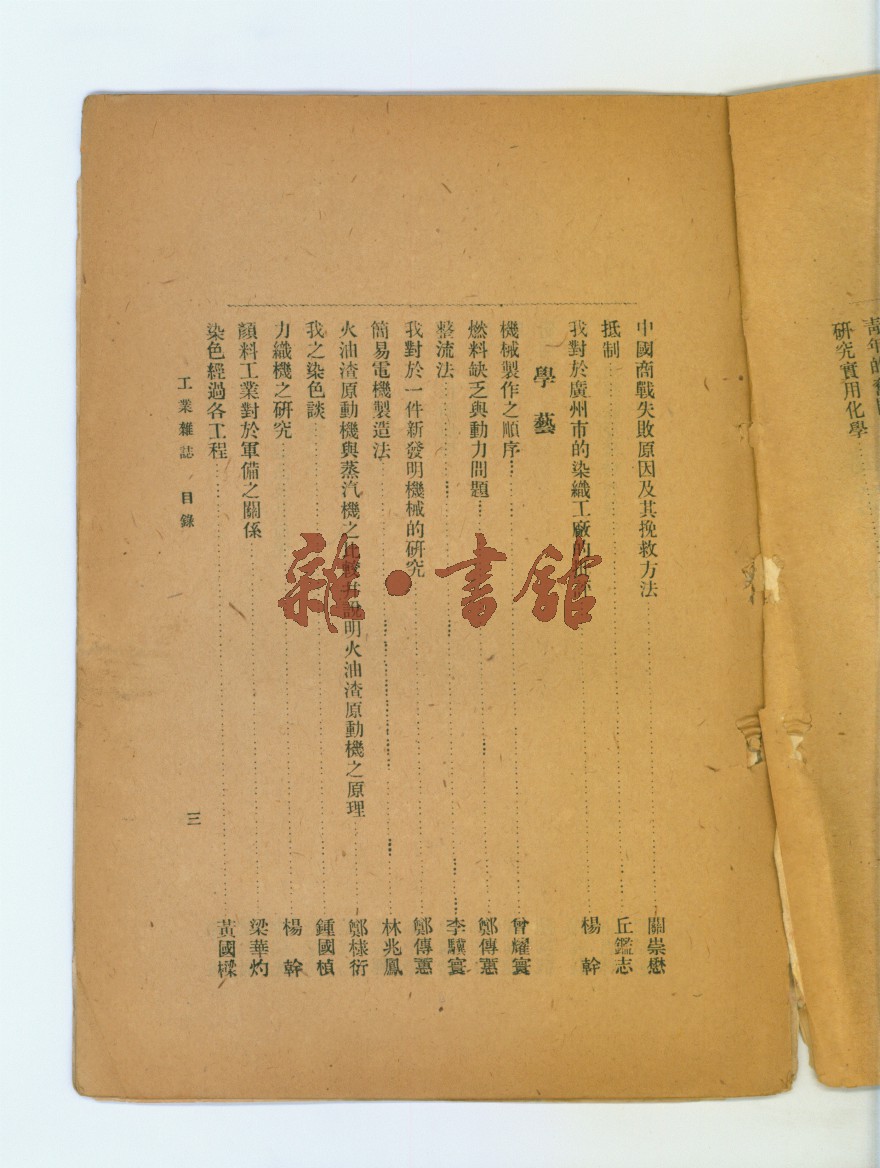 研究實用化學
中國商戰失敗原因及其挽救方法 關崇懋
抵制 丘鑑志
我對於廣州市的染織工廠的 楊幹
學藝
機械製作之順序 曾耀寰
燃料缺乏與動力問題 鄭傳
整流法 李驥寰
我對於一件新發明機械的研究 鄭傳
簡易電機製造法 林兆鳳
火油渣原動機與蒸汽機之比較并說明火油渣原動機之原理 鄭樣衍
我之染色談 鍾國楨
力織機之研究 楊幹
顏料工業對於軍備之關係 梁華灼
染色經過各工程 黃國樑
工業雜誌 目錄
三
雜·書館